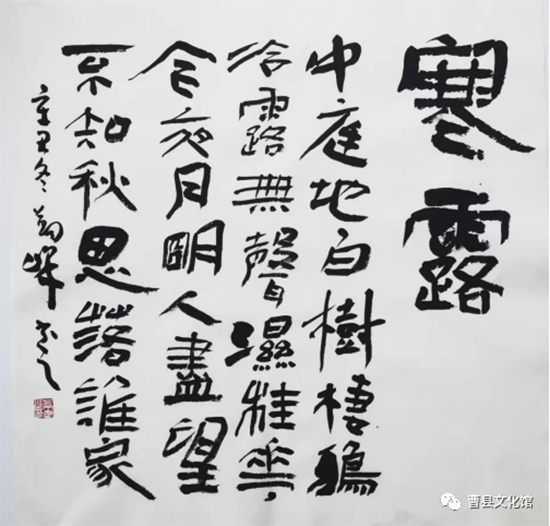 寒露
中庭地白樹棲鴉
冷露無聲濕桂華
今夜月明人盡望
不知秋思落誰家
辛丑冬 峰书之
曹县文化馆